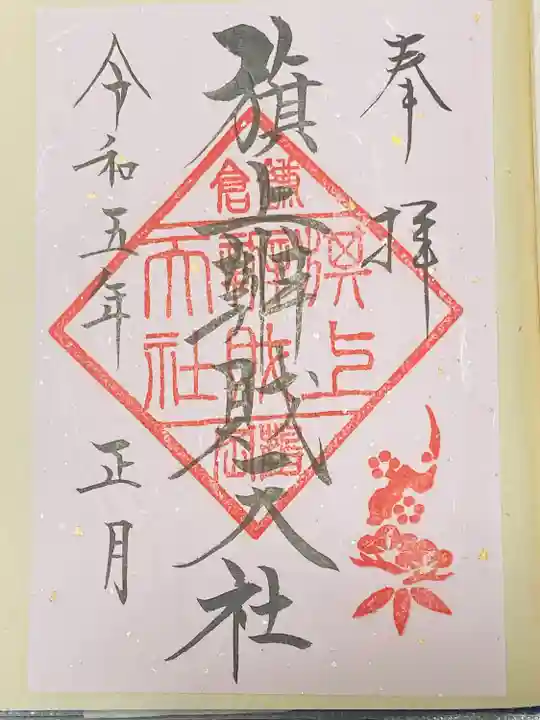 奉拝
旗上辨財天社
令和五年 正月
鎌倉
旗上
辨財
天社